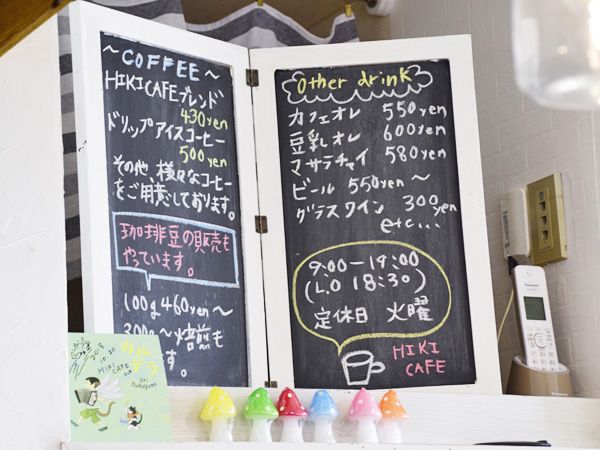 ~COFFEE~
HIKI CAFEブレンド
430yen
ドリップアイスコーヒー
500yen
その他、様々なコーヒー
をご用意しております。
珈琲豆の販売も
やっています。
100g 460yen~
300g~焙煎も
す。
Other drink
カフェオレ 550yen
豆乳オレ 600yen
マサラチャイ 580yen
ビール 550yen~
グラスワイン 300yen
etc...
9:00-19:00
(L.O 18:30)
定休日 火曜
HIKI
CAFE
カル
デラ
2018
10.20
HIKI CAFE
Panasonic